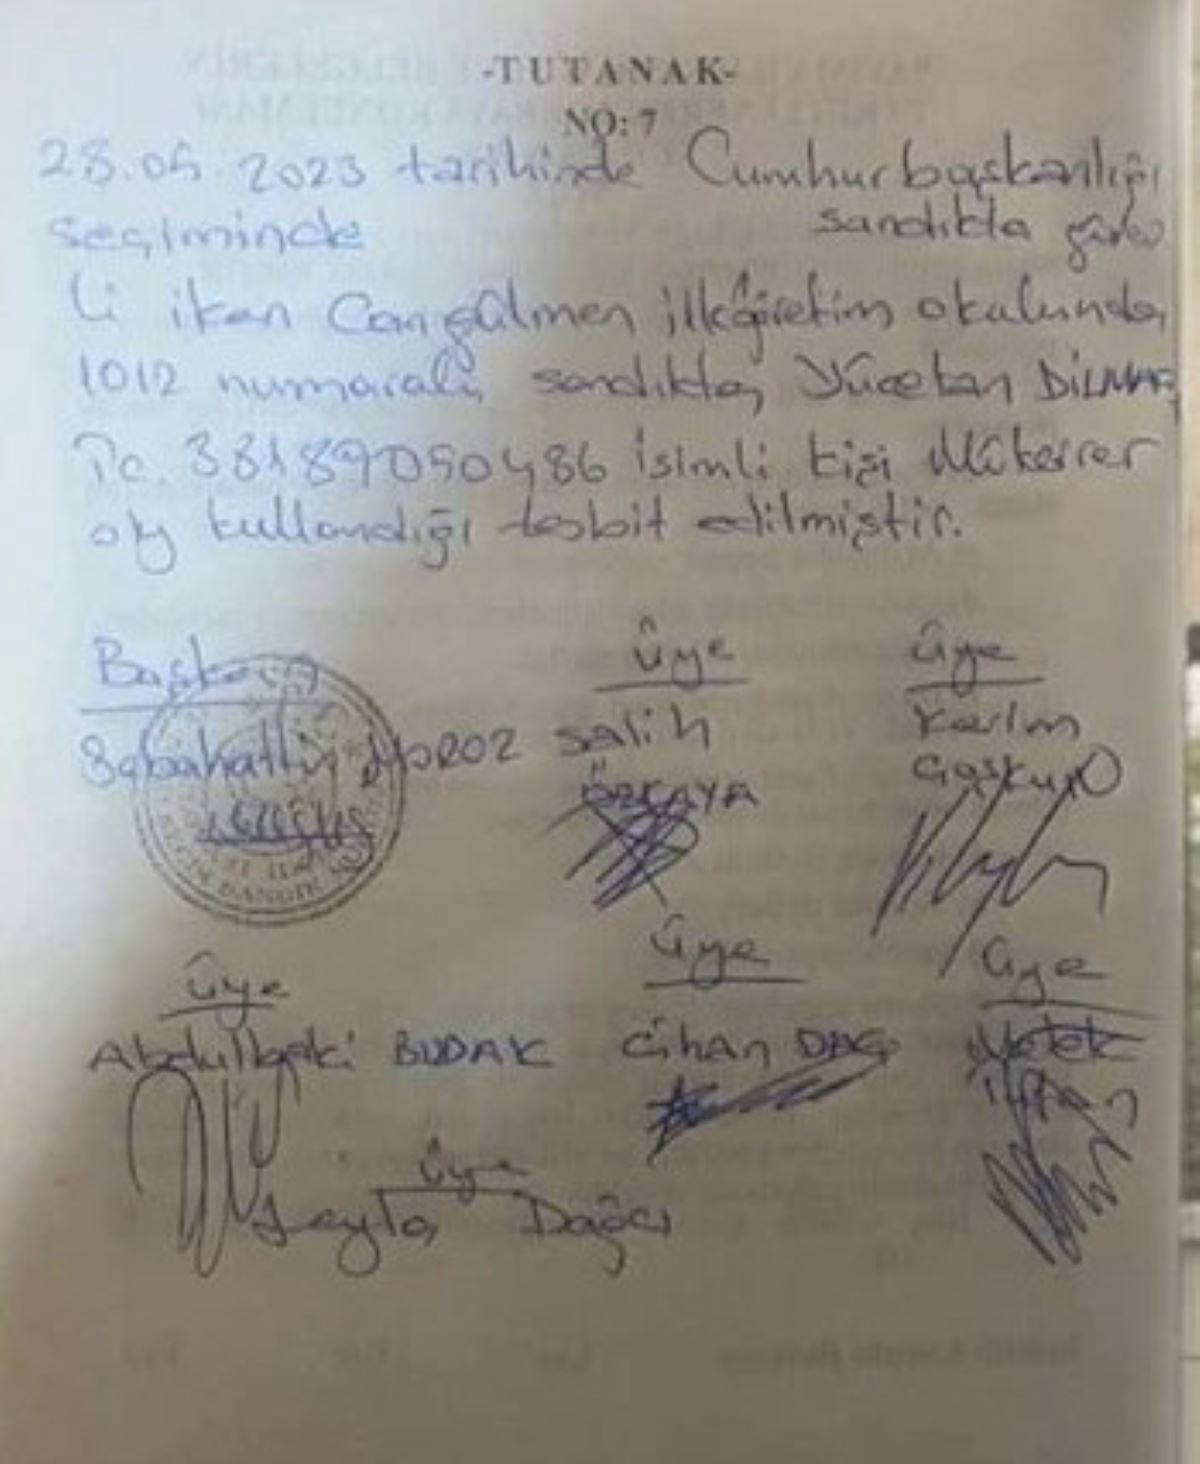 -TUTANAK-
NO: 7
28.05.2023 tarihinde Cumhurbaşkanlığı
seçiminde sandıkta görev
li iken Cangülmen ilköğretim okulunda
1012 numaralı sandıkta Yücetan DİLMAÇ
Tc. 38189050486 isimli kişi Mükerrer
oy kullandığı tesbit edilmiştir.
Başkan Üye Üye
Sabahattin MOROZ Salih Kerim
ÖZKAYA Coşkun
Üye Üye Üye
Abdulbaki BUDAK Cihan DAĞ
Üye
Leyla Dağcı